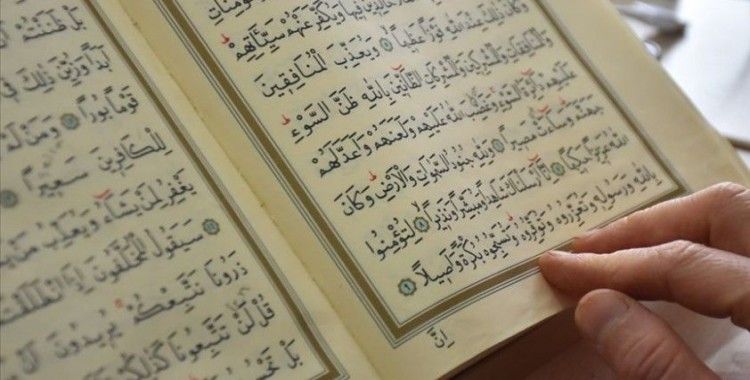 خَالِدِينَ فِيهَا وَيُكَفِّرَ عَنْهُمْ سَيِّـَٔاتِهِمْ
وَكَانَ ذٰلِكَ عِنْدَ اللّٰهِ فَوْزًا عَظِيمًا ۝ وَيُعَذِّبَ الْمُنَافِقِينَ
وَالْمُنَافِقَاتِ وَالْمُشْرِكِينَ وَالْمُشْرِكَاتِ الظَّٓانِّينَ بِاللّٰهِ ظَنَّ السَّوْءِ
عَلَيْهِمْ دَٓائِرَةُ السَّوْءِ وَغَضِبَ اللّٰهُ عَلَيْهِمْ وَلَعَنَهُمْ وَاَعَدَّ لَهُمْ
جَهَنَّمَ وَسَٓاءَتْ مَصِيرًا ۝ وَلِلّٰهِ جُنُودُ السَّمٰوَاتِ وَالْاَرْضِ وَكَانَ
اللّٰهُ عَزِيزًا حَكِيمًا ۝ اِنَّٓا اَرْسَلْنَاكَ شَاهِدًا وَمُبَشِّرًا وَنَذِيرًا ۝ لِتُؤْمِنُوا
بِاللّٰهِ وَرَسُولِهِ وَتُعَزِّرُوهُ وَتُوَقِّرُوهُ وَتُسَبِّحُوهُ بُكْرَةً وَاَصِيلًا ۝
اِنَّ
بَلْ ظَنَنْتُمْ
اَبَدًا وَزُيِّنَ ذٰلِكَ فِي
قَوْمًا بُورًا ۝ وَمَنْ لَمْ
لِلْكَافِرِينَ سَعِيرًا ۝
يَغْفِرُ لِمَنْ يَشَٓاءُ وَيُعَذِّبُ مَنْ
۝ سَيَقُولُ الْمُخَلَّفُونَ اِذَا انْطَلَقْتُمْ
ذَرُونَا نَتَّبِعْكُمْ يُرِيدُونَ اَنْ
قُلْ لَنْ تَتَّبِعُونَا كَذٰلِكُمْ